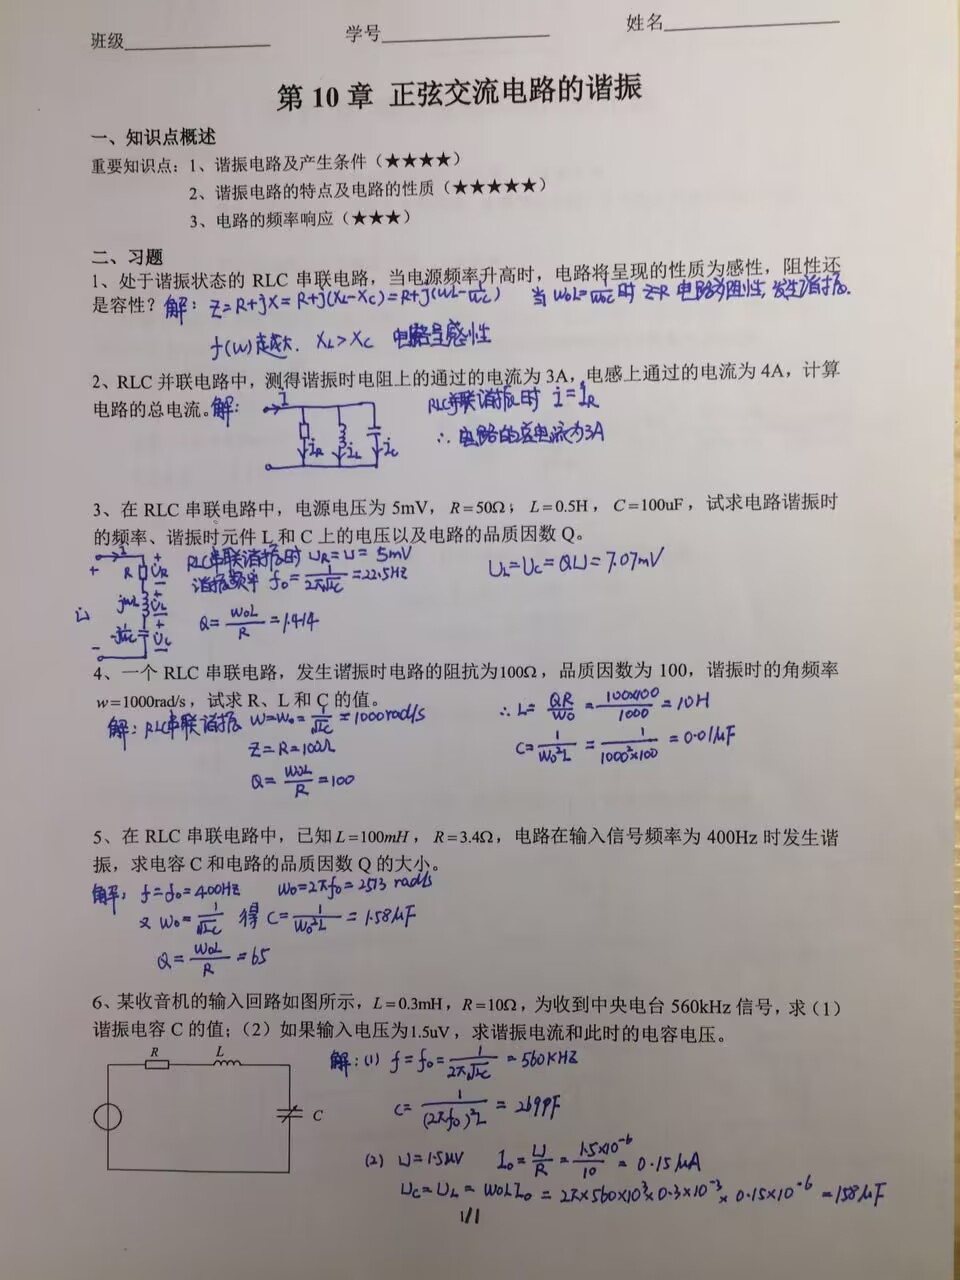 班级 学号 姓名
第 10 章 正弦交流电路的谐振
一、知识点概述
重要知识点：1、谐振电路及产生条件（★★★★）
2、谐振电路的特点及电路的性质（★★★★★）
3、电路的频率响应（★★★）
二、习题
1、处于谐振状态的 RLC 串联电路，当电源频率升高时，电路将呈现的性质为感性，阻性还
是容性？ 解：Z=R+jX=R+j(XL-XC)=R+j(ωL-1/ωC) 当 ω₀L=1/ω₀C 时 Z=R 电路为阻性，发生谐振.
f(ω)越大. XL>XC 电路呈感性
2、RLC 并联电路中，测得谐振时电阻上的通过的电流为 3A，电感上通过的电流为 4A，计算
电路的总电流。解： İ RLC并联谐振时 İ=İR
İR İL İC ∴电路的总电流为3A
3、在 RLC 串联电路中，电源电压为 5mV，R=50Ω；L=0.5H，C=100uF，试求电路谐振时
的频率、谐振时元件 L 和 C 上的电压以及电路的品质因数 Q。
RLC串联谐振时 UR=U=5mV UL=UC=QU=7.07mV
谐振频率 f₀=1/2π√LC=22.5HZ
+ R + U̇R - jωL + U̇L - + U̇C -
Q=ω₀L/R=1.414
4、一个 RLC 串联电路，发生谐振时电路的阻抗为100Ω，品质因数为 100，谐振时的角频率
w=1000rad/s，试求 R、L 和 C 的值。
解：RLC串联谐振 ω=ω₀=1/√LC=1000rad/s ∴L=QR/ω₀=100×100/1000=10H
Z=R=100Ω C=1/ω₀²L=1/1000²×100=0.01μF
Q=ω₀L/R=100
5、在 RLC 串联电路中，已知L=100mH，R=3.4Ω，电路在输入信号频率为 400Hz 时发生谐
振，求电容 C 和电路的品质因数 Q 的大小。
解：f=f₀=400HZ ω₀=2πf₀=2513 rad/s
又 ω₀=1/√LC 得 C=1/ω₀²L=1.58μF
Q=ω₀L/R=65
6、某收音机的输入回路如图所示，L=0.3mH，R=10Ω，为收到中央电台 560kHz 信号，求（1）
谐振电容 C 的值；（2）如果输入电压为1.5uV，求谐振电流和此时的电容电压。
R L 解：(1) f=f₀=1/2π√LC=560KHZ
C C=1/(2πf₀)²L=269PF
(2) U=1.5μV I₀=U/R=1.5×10⁻⁶/10=0.15μA
UC=UL=ω₀LI₀=2π×560×10³×0.3×10⁻³×0.15×10⁻⁶=158μF
1/1